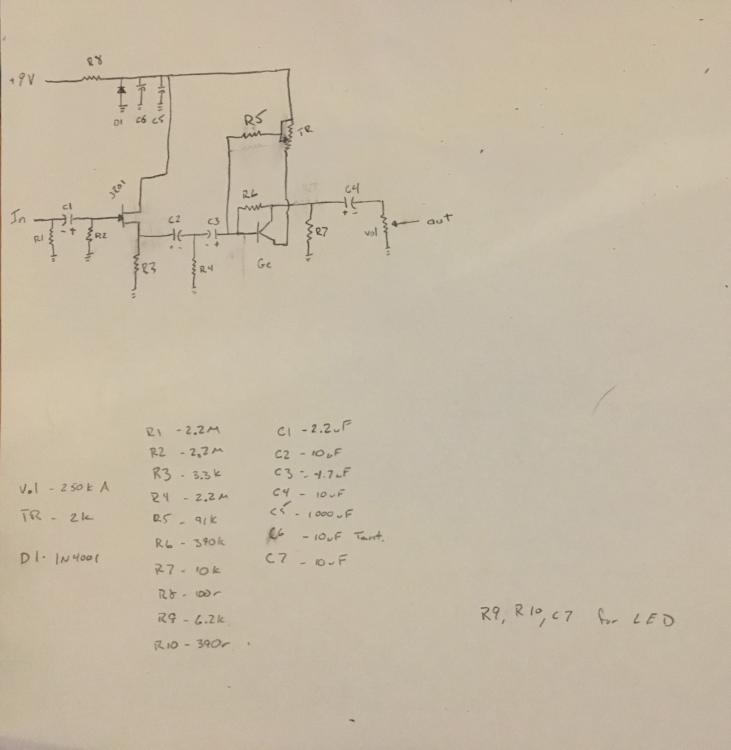 R8
+9V
D1 C6 C5
R5
TR
J201
R6
C4
In
C1
C2
C3
- +
+ -
- +
+ -
R1
R2
R3
R4
Ge
R7
Vol
out
R1 - 2.2M
R2 - 2.2M
R3 - 3.3k
R4 - 2.2M
R5 - 91k
R6 - 390k
R7 - 10k
R8 - 100r
R9 - 6.2k
R10 - 390r
C1 - 2.2uF
C2 - 10uF
C3 - 4.7uF
C4 - 10uF
C5 - 1000uF
C6 - 10uF Tant.
C7 - 10uF
Vol - 250k A
TR - 2k
D1 - 1N4001
R9, R10, C7 for LED